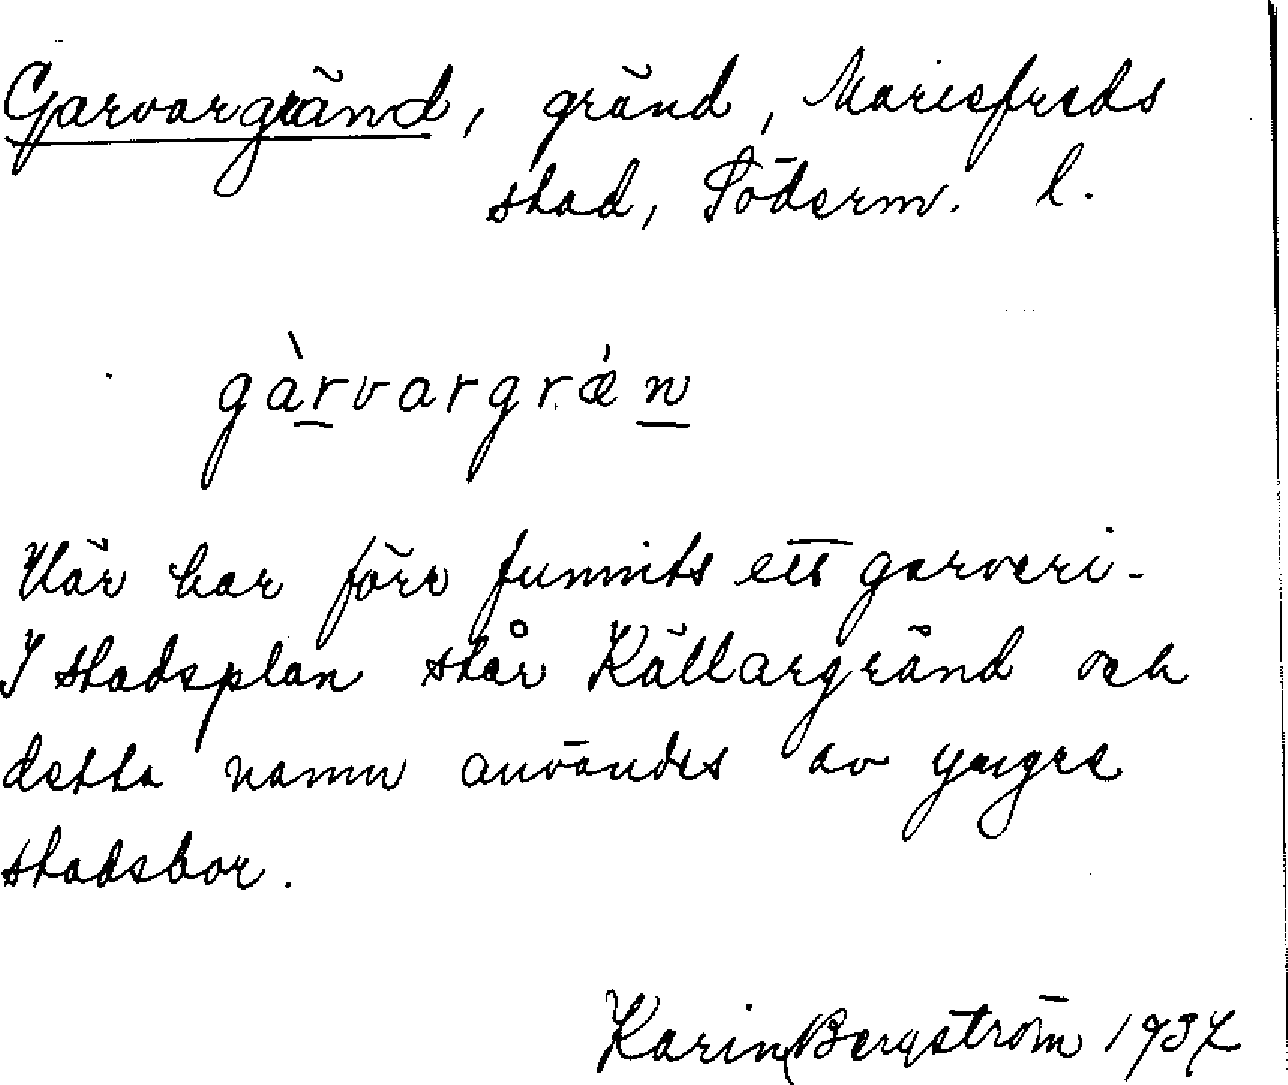 Garvargränd, gränd, Mariefreds
stad, Söderm. l.
gàrvargrǽn
Här har förr funnits ett garveri.
I stadsplan står Källargränd och
detta namn användes av yngre
stadsbor.
Karin Bergström 1937